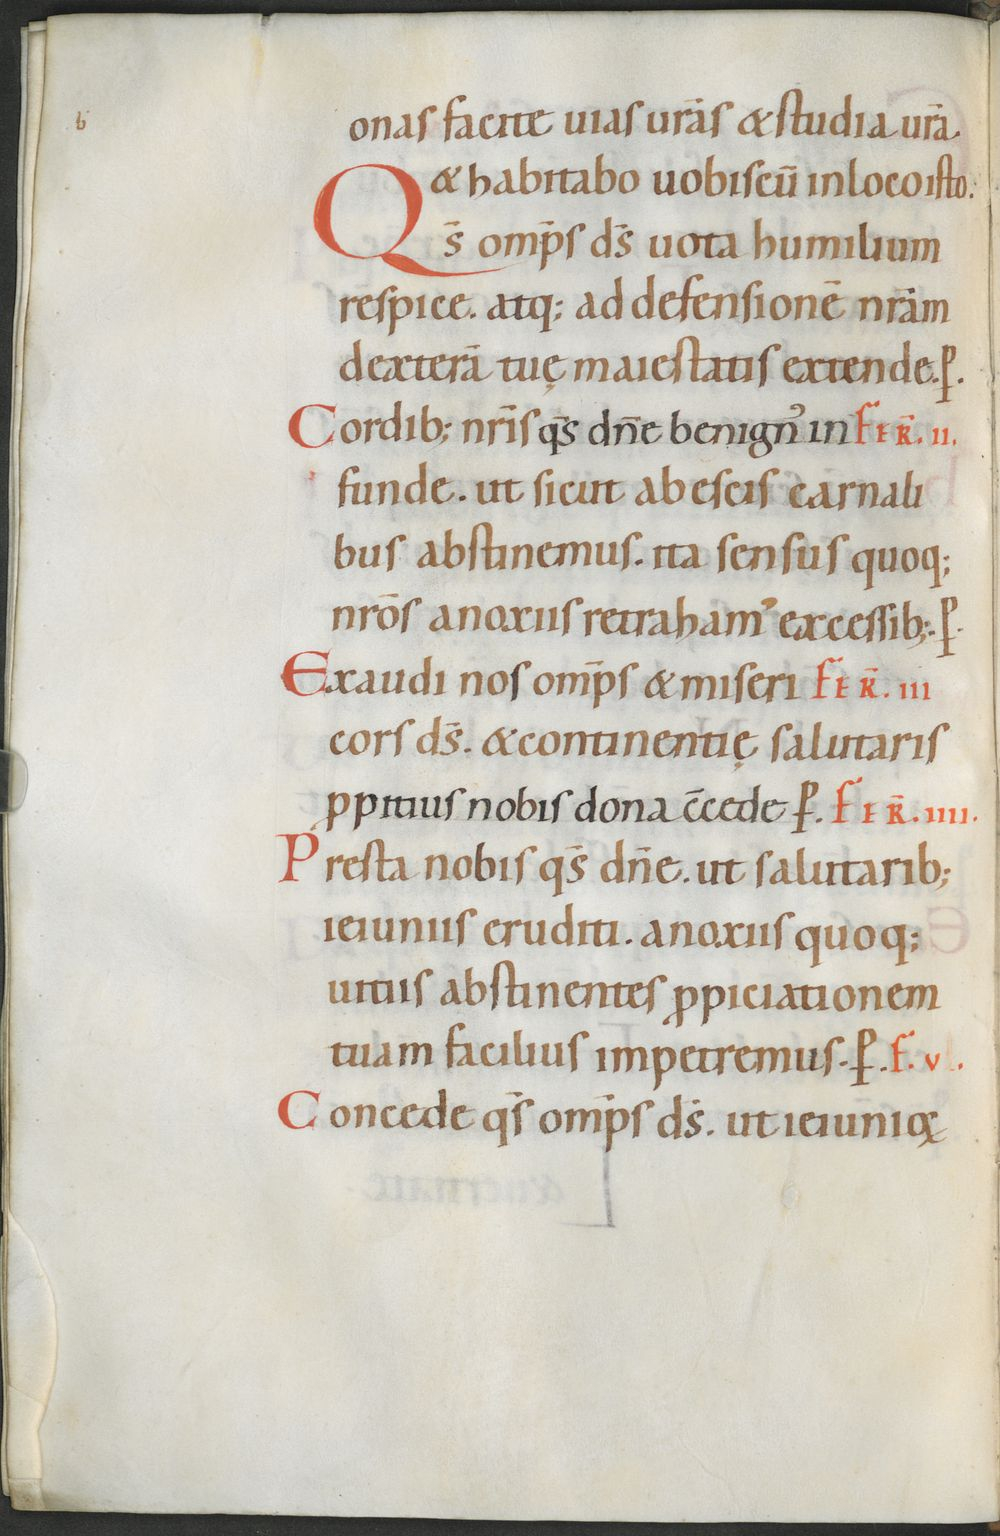 b
onas facite uias urās & studia urā.
& habitabo uobiscū inlocoisto.
Qs̄ omp̄s ds̄ uota humilium
respice. atq; ad defensionē nrām
dexterā tuę maiestatis extende. p̱.
Cordib; nrīs qs̄ dn̄e benignꝰ in FER̄. II.
funde. ut sicut abescis carnali
bus abstinemus. ita sensus quoq;
nrōs anoxiis retrahamʼ excessib;. p̱.
Exaudi nos omp̄s & miseri FER̄. III
cors ds̄. & continentię salutaris
ꝓpitius nobis dona c̄cede p̱. FER̄. IIII.
Presta nobis qs̄ dn̄e. ut salutarib;
ieiuniis eruditi. anoxiis quoq;
uitiis abstinentes ꝓpiciationem
tuam facilius impetremus. p̱. F. V .
Concede qs̄ omp̄s ds̄. ut ieiunioꝝ